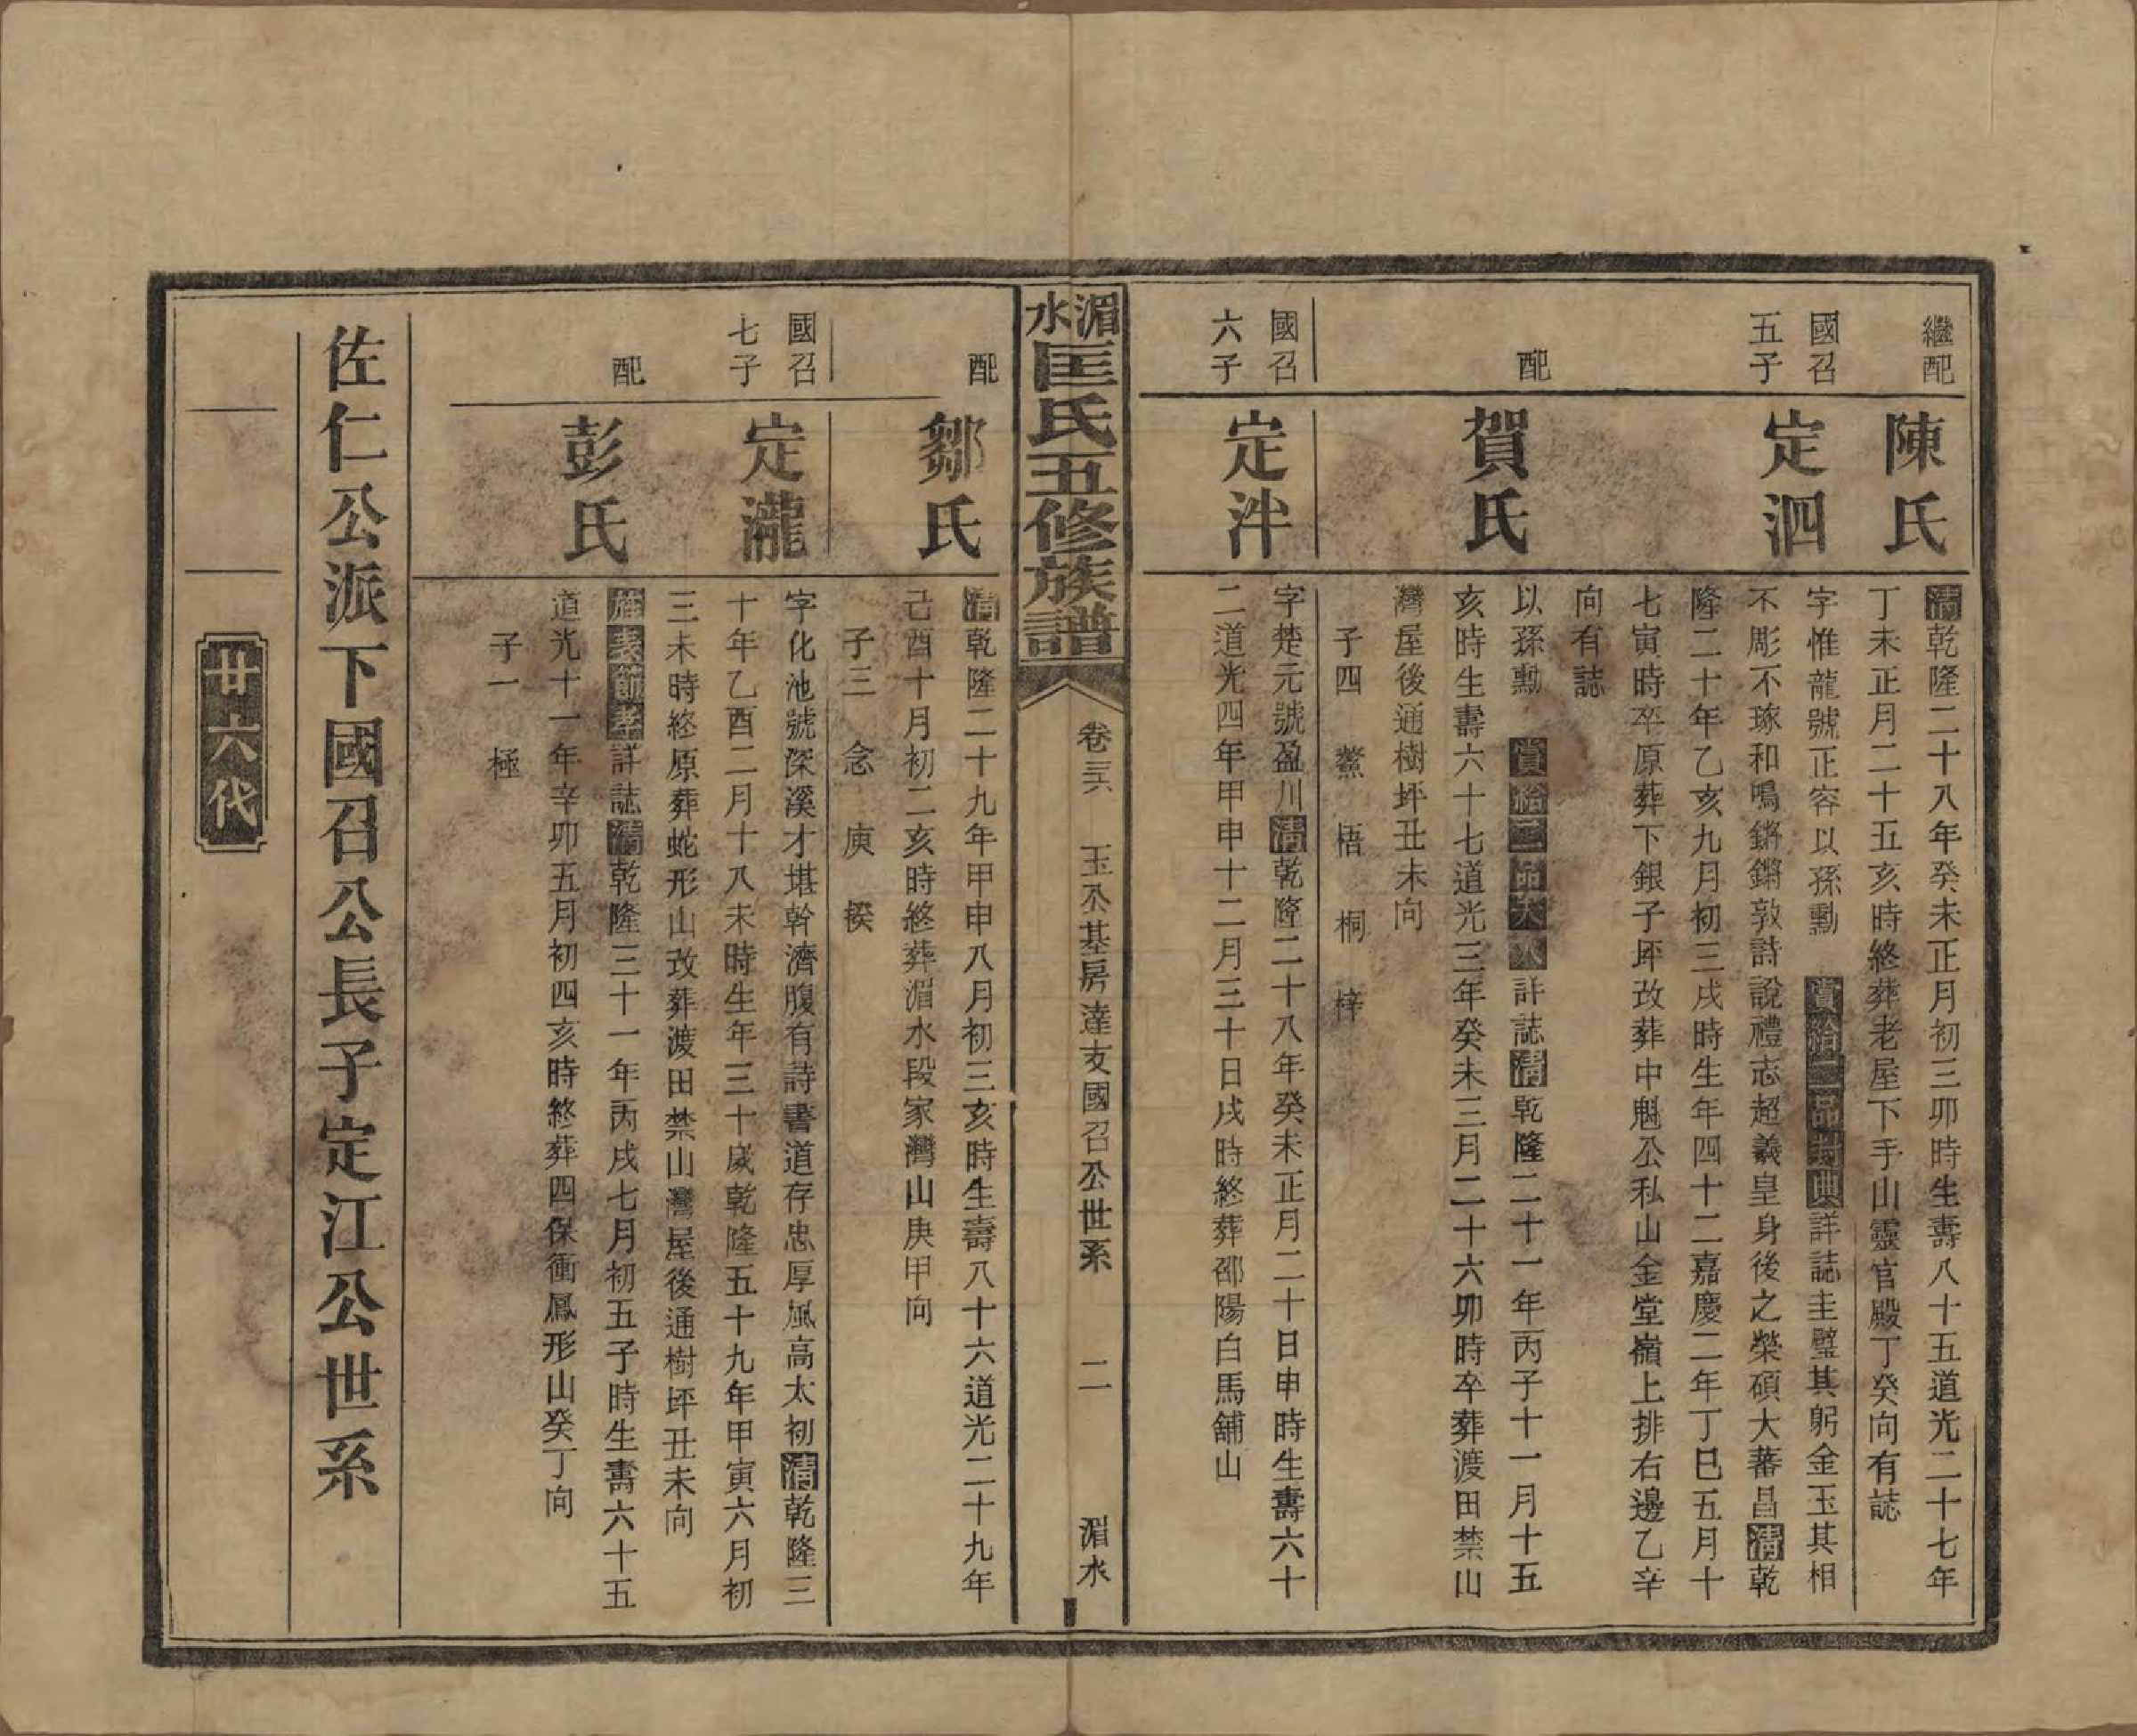 繼配
陳氏
清乾隆二十八年癸未正月初三卯時生壽八十五道光二十七年
丁未正月二十五亥時終葬老屋下手山靈官殿丁癸向有誌
國召
五子
定泗
字惟龍號正容以孫勳 賞給二品封典詳誌圭璧其躬金玉其相
不彫不琢和鳴鏘鏘敦詩說禮志超羲皇身後之榮碩大蕃昌清乾
隆二十年乙亥九月初三戌時生年四十二嘉慶二年丁巳五月十
七寅時卒原葬下銀子坪改葬中魁公私山金堂嶺上排右邊乙辛
向有誌
配
賀氏
以孫勳 賞給二品夫人詳誌清乾隆二十一年丙子十一月十五
亥時生壽六十七道光三年癸未三月二十六卯時卒葬渡田禁山
灣屋後通樹坪丑未向
子四 鰲 梧 桐 梓
國召
六子
定泮
字楚元號盈川清乾隆二十八年癸未正月二十日申時生壽六十
二道光四年甲申十二月三十日戌時終葬邵陽白馬舖山
湄水匡氏五修族譜
卷三六 玉公基房達支國召公世系 二 湄水
配
鄒氏
清乾隆二十九年甲申八月初三亥時生壽八十六道光二十九年
己酉十月初二亥時終葬湄水段家灣山庚甲向
子三 念 庾 揆
國召
七子
定瀧
字化池號深溪才堪幹濟腹有詩書道存忠厚風高太初清乾隆三
十年乙酉二月十八未時生年三十歲乾隆五十九年甲寅六月初
三未時終原葬蛇形山改葬渡田禁山灣屋後通樹坪丑未向
配
彭氏
旌表節孝詳誌清乾隆三十一年丙戌七月初五子時生壽六十五
道光十一年辛卯五月初四亥時終葬四保衝鳳形山癸丁向
子一 極
佐仁公派下國召公長子定江公世系
廿六代